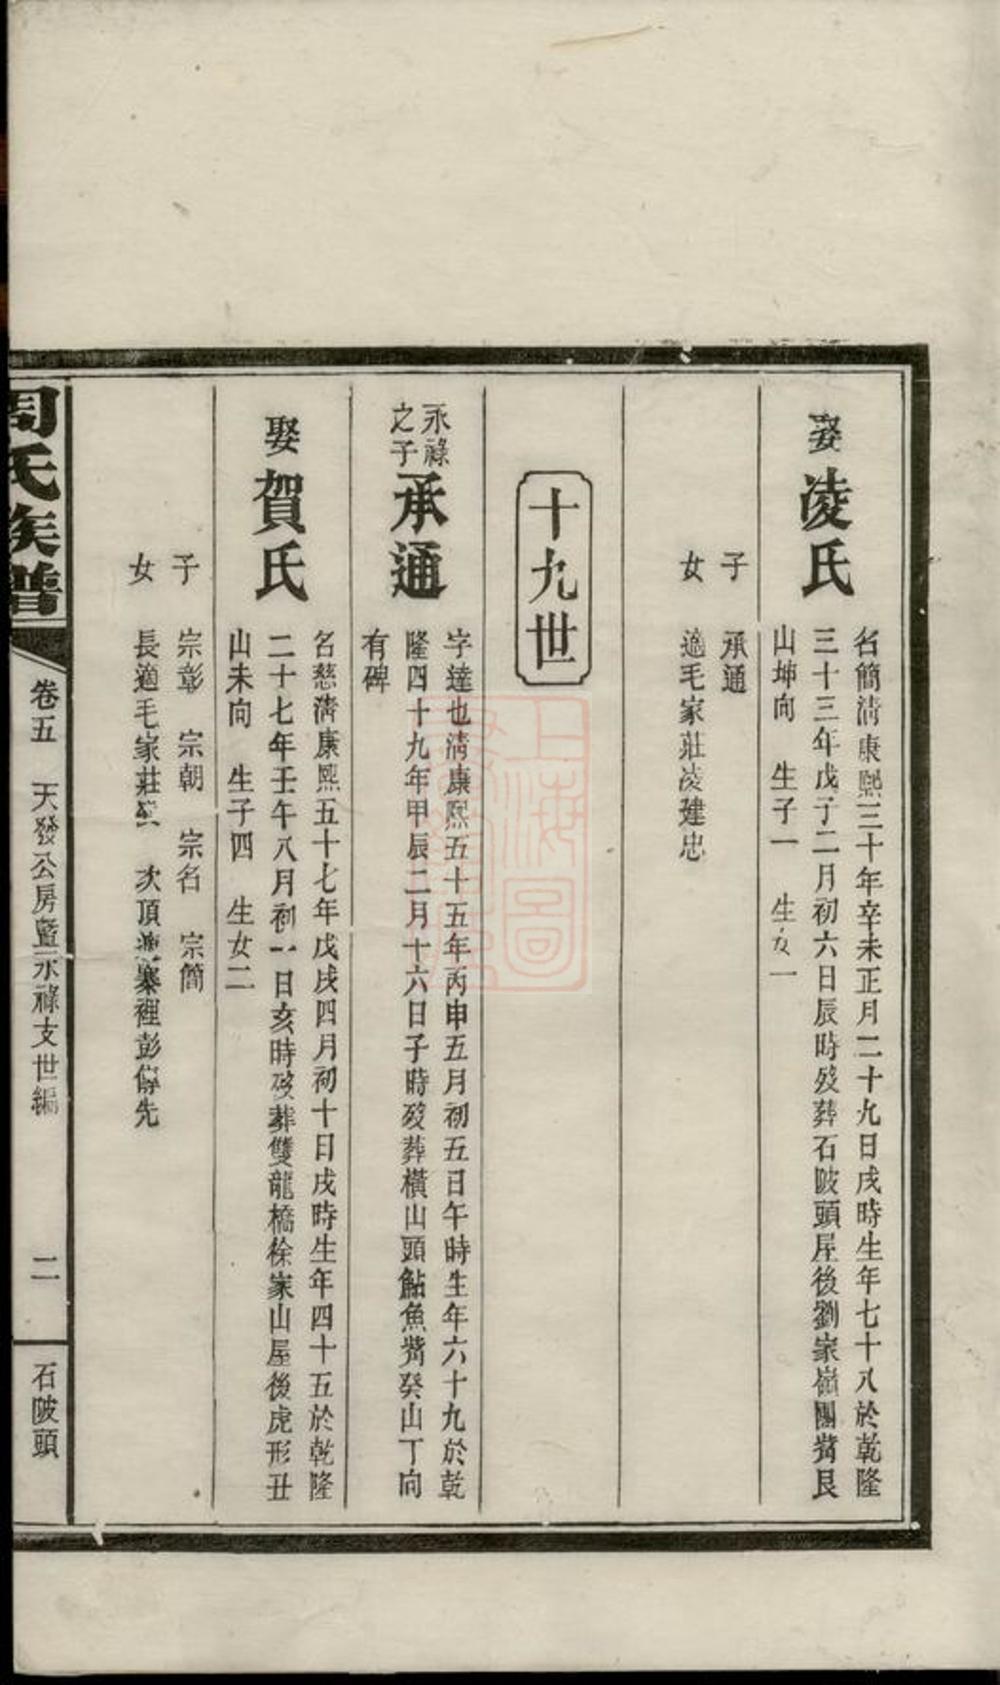 娶
凌氏
名簡清康熙三十年辛未正月二十九日戌時生年七十八於乾隆
三十三年戊子二月初六日辰時歿葬石陂頭屋後劉家嶺團觜艮
山坤向　生子一　生女一
子　承通
女　適毛家莊凌建忠
十九世
永祿
之子
承通
字達也清康熙五十五年丙申五月初五日午時生年六十九於乾
隆四十九年甲辰二月十六日子時歿葬橫山頭鮎魚觜癸山丁向
有碑
娶
賀氏
名慈清康熙五十七年戊戌四月初十日戌時生年四十五於乾隆
二十七年壬午八月初一日亥時歿葬雙龍橋徐家山屋後虎形丑
山未向　生子四　生女二
子　宗彰　宗朝　宗名　宗簡
女　長適毛家莊　次頂　寨裡彭　先
周氏族譜
卷五　天發公房暨永祿支世編
二
石陂頭
上海圖